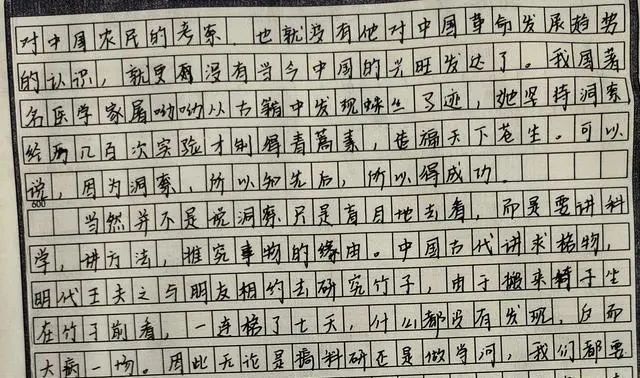 对中国农民的考察，也就没有他对中国革命发展趋势
的认识，就更别没有当今中国的兴旺发达了。我国著
名医学家屠呦呦从古籍中发现蛛丝马迹，她坚持洞察
经历几百次实验才制得青蒿素，造福天下苍生。可以
说，因为洞察，所以知先后，所以得成功。
600
当然并不是说洞察只是盲目地去看，而是要讲科
学，讲方法，推究事物的缘由。中国古代讲求格物，
明代王夫之与朋友相约去研究竹子，由于搬来椅子坐
在竹子前看，一连格了七天，什么都没有发现，白而
大病一场。因此无论是搞科研还是做学问，我们都要